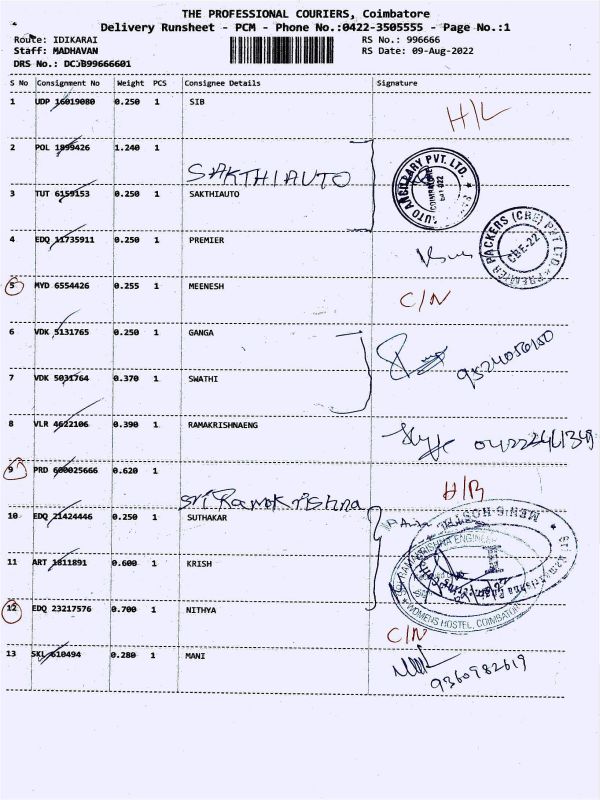 THE PROFESSIONAL COURIERS, Coimbatore
Delivery Runsheet - PCM - Phone No.:0422-3505555 - Page No.:1
Route: IDIKARAI RS No.: 996666
Staff: MADHAVAN RS Date: 09-Aug-2022
DRS No.: DCJB99666601
S No Consignment No Weight PCS Consignee Details Signature
1 UDP 16019080 0.250 1 SIB
H/L
2 POL 1899426 1.240 1
SAKTHIAUTO
AUTO ANCILLARY PVT. LTD.
COIMBATORE
3 TUT 6159153 0.250 1 SAKTHIAUTO
4 EDQ 11735911 0.250 1 PREMIER
PREMIER PACKERS (CBE) PVT LTD.
CBE-22
5 MYD 6554426 0.255 1 MEENESH
C/N
6 VDK 5131765 0.250 1 GANGA
7 VDK 5031764 0.370 1 SWATHI
8 VLR 4622106 0.390 1 RAMAKRISHNAENG
9 PRD 600025666 0.620 1
H/B
Sri Ramakrishna
10 EDQ 21424446 0.250 1 SUTHAKAR
MEN'S HOSTEL
11 ART 1811891 0.600 1 KRISH
SRI RAMAKRISHNA ENGINEERING
WOMENS HOSTEL, COIMBATORE
12 EDQ 23217576 0.700 1 NITHYA
C/N
13 SKL 610494 0.280 1 MANI
9360982619